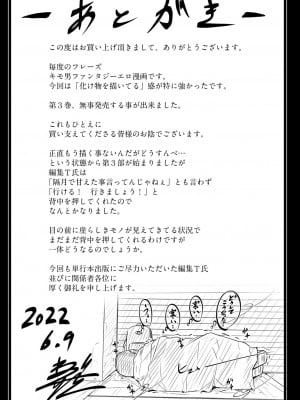 ーあとがきー
この度はお買い上げ頂きまして、ありがとうございます。
毎度のフレーズ
キモ男ファンタジーエロ漫画です。
今回は「化け物を描いてる」感が特に強かったです。
第3巻、無事発売する事が出来ました。
これもひとえに
買い支えてくださる皆様のお陰でございます。
正直もう描く事ないんだがどうすんべ…
という状態から第3部が始まりましたが
編集T氏は
「隔月で甘えた事言ってんじゃねぇ」とも言わず
「行ける！ 行きましょう！」と
背中を押してくれたので
なんとかなりました。
目の前に崖らしきモノが見えてきてる状況で
まだまだ背中を押してくれるわけですが
一体どうなるのでしょうか。
今回も単行本出版にご尽力いただいた編集T氏
並びに関係者各位に
厚く御礼を申し上げます。
2022
6.9